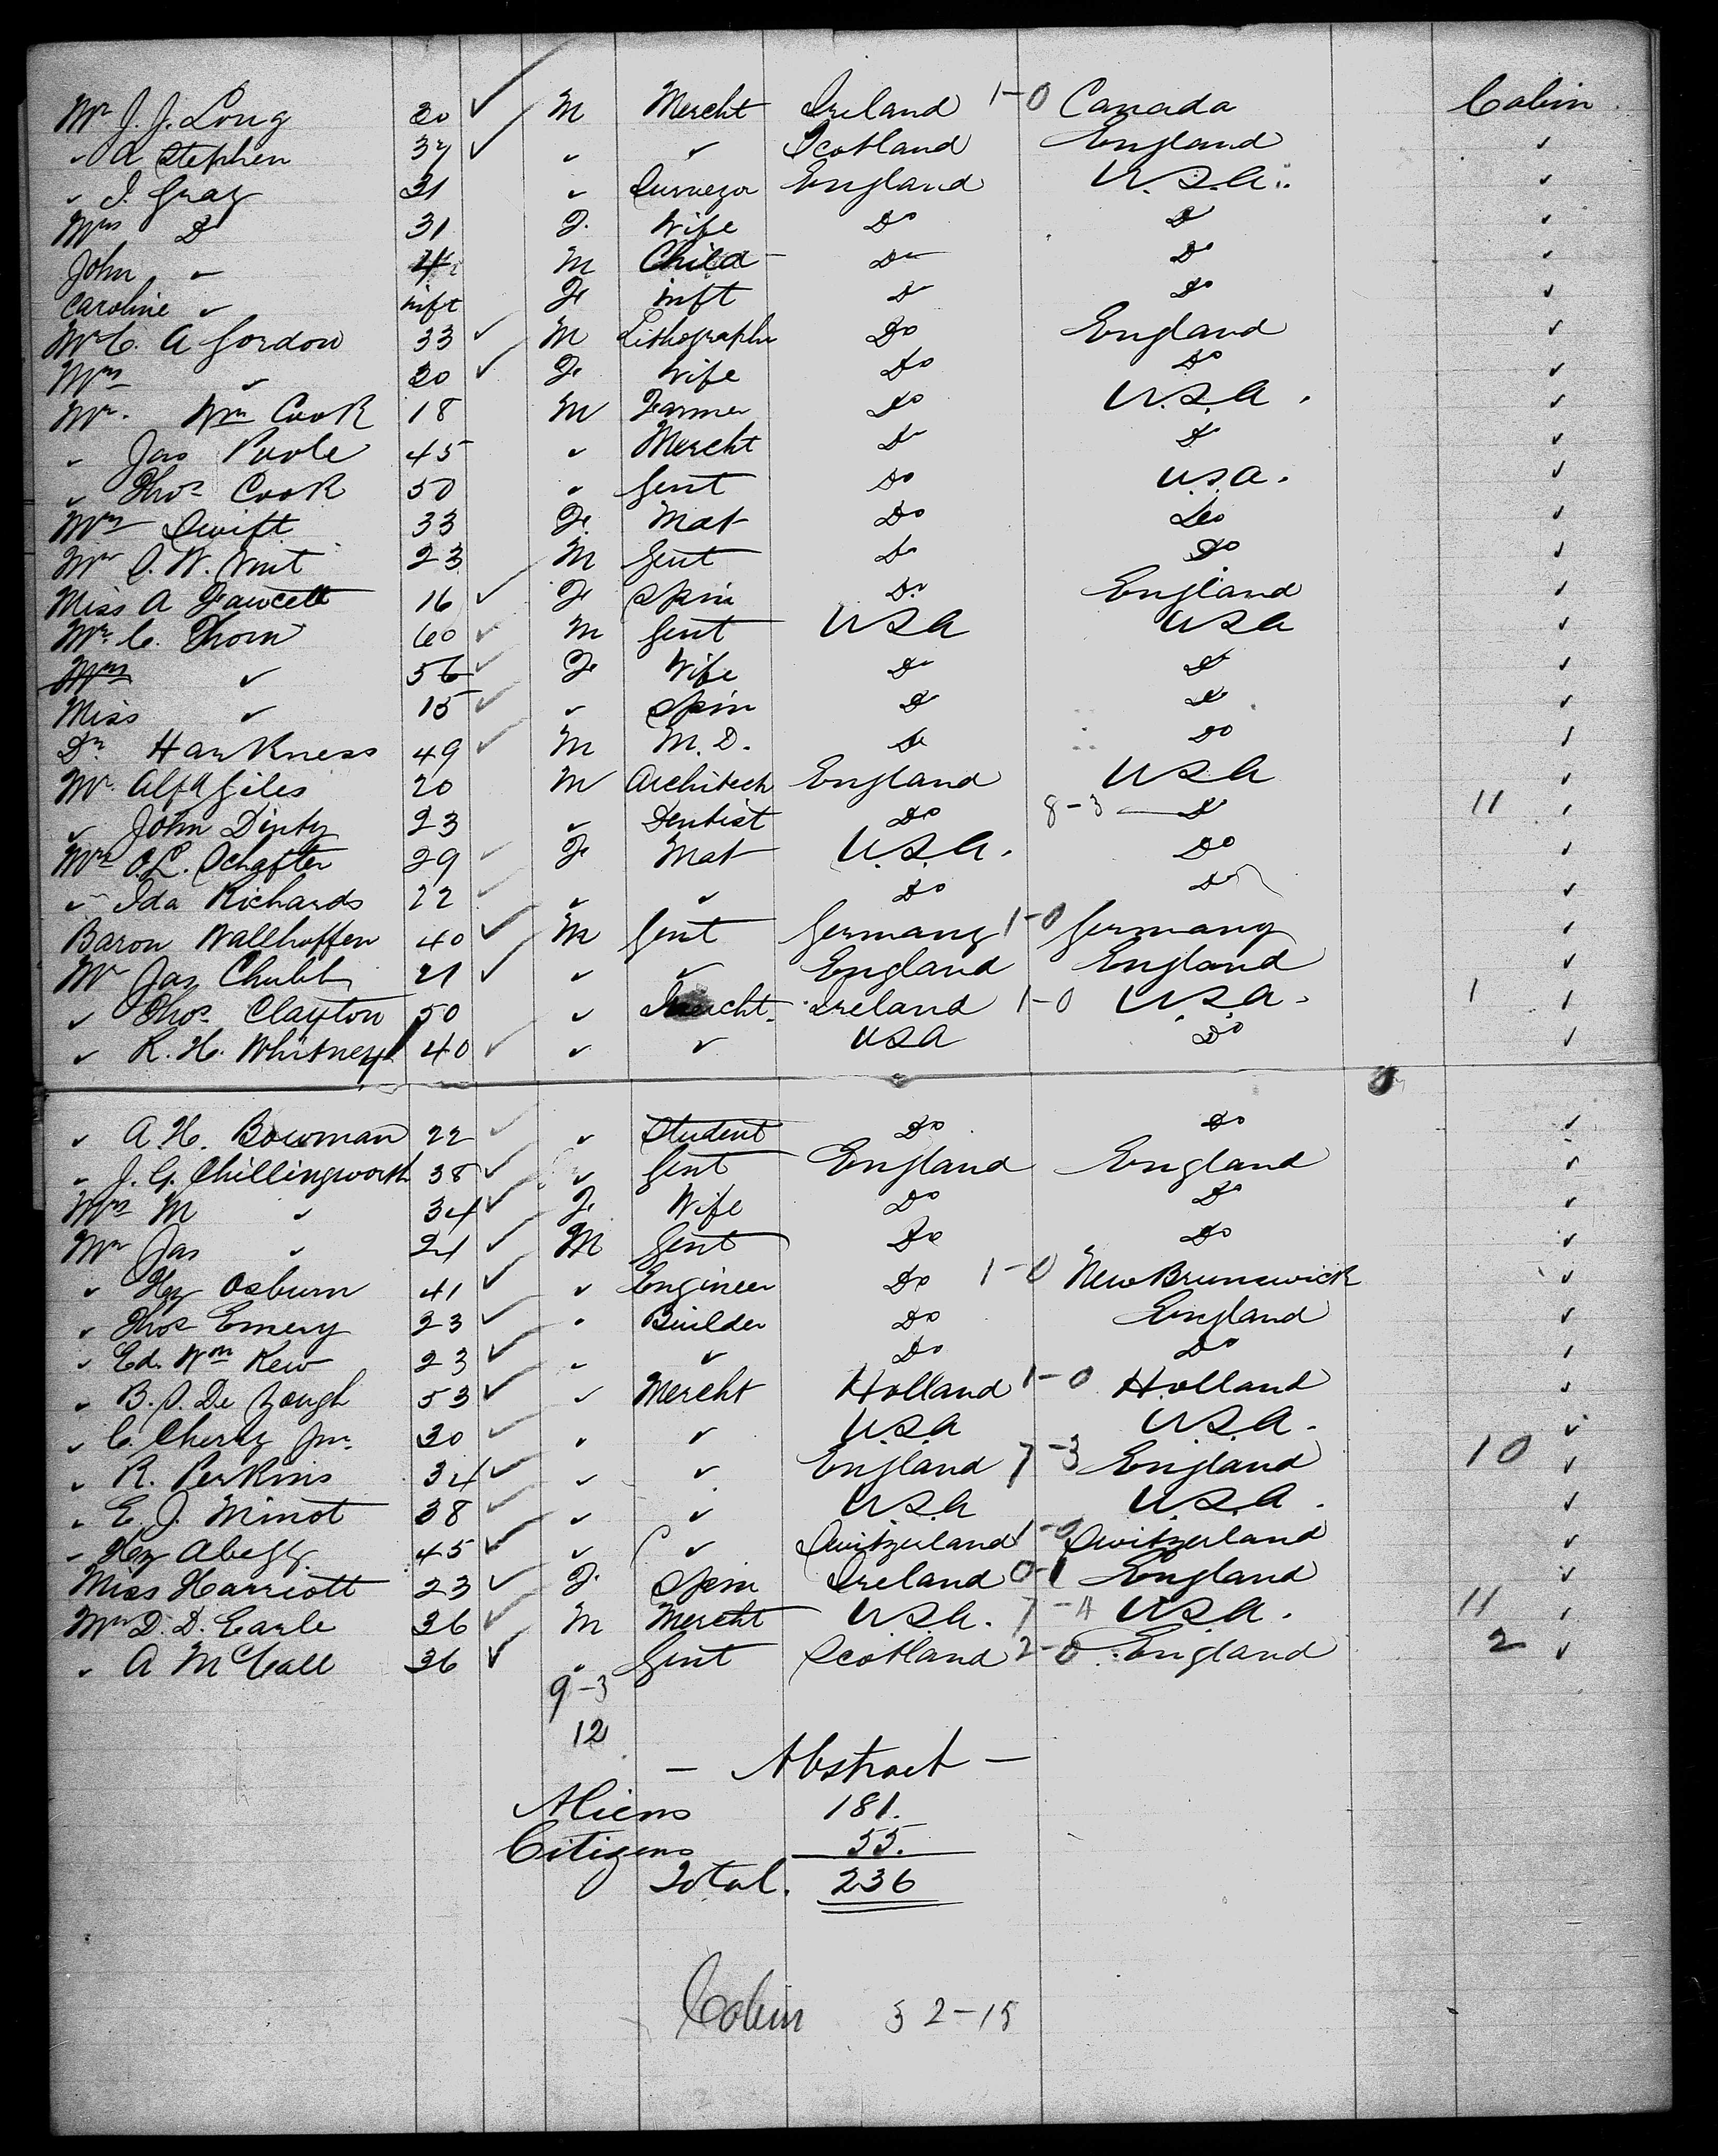 Mr J. J. Long 30 M Mercht Ireland 1-0 Canada Cabin
" A Stephen 37 " " Scotland England "
" J. Gray 31 " Surveyor England U.S.A. "
Mrs Do 31 F. Wife Do Do "
John " 4 M Child Do Do "
Caroline " inft Fe inft Do Do "
Mr C. A Gordon 33 M Lithographr Do England "
Mrs " 30 Fe Wife Do Do "
Mr. Wm Cook 18 M Farmer Do U.S.A. "
" Jas Poole 45 " Mercht Do Do "
" Thos Cook 50 " Gent Do U.S.A. "
Mrs Swift 33 Fe Mat Do Do "
Mr S. W. 23 M Gent Do Do "
Miss A Fawcett 16 Fe Spin Do England "
Mr. C. Thorn 60 M Gent USA USA "
Mrs " 56 Fe Wife Do Do "
Miss " 15 " Spin Do Do "
Dr. Harkness 49 M M.D. Do Do "
Mr. Alfd Giles 20 M Architech England USA "
" John 23 " Dentist Do 8-3 Do 11 "
Mrs O.L. Schafter 29 Fe Mat U.S.A. Do "
" Ida Richards 22 " " Do Do "
Baron Wallhoffen 40 M Gent Germany 1-0 Germany "
Mr Jas Chubb 21 " " England England "
" Thos. Clayton 50 " Mercht. Ireland 1-0 U.S.A. 1 "
" R. H. Whitney 40 " " USA Do "
" A. H. Bowman 22 " Student Do Do "
" J. G. Chillingworth 38 " Gent England England "
Mrs M " 34 Fe Wife Do Do "
Mr Jas " 21 M Gent Do Do "
" Hy Osburn 41 " Engineer Do 1-0 New Brunswick "
" Thos Emery 23 " Builder Do England "
" Ed. Wm Kew 23 " " Do Do "
" B. S. De Jough 53 " Mercht Holland 1-0 Holland "
" C. Cherry Jnr. 30 " " U.S.A U.S.A. "
" R. Perkins 34 " " England 7-3 England 10 "
" E. J. Minot 38 " " U.S.A U.S.A. "
" Hy Abegg. 45 " " Switzerland 1-0 Switzerland "
Miss Harriott 23 F. Spin Ireland 0-1 England "
Mr D. D. Earle 36 M Mercht U.S.A. 7-4 U.S.A. 11 "
" A McCall 36 " Gent Scotland 2-0 England 2 "
9-3
12
— Abstract —
Aliens 181.
Citizens 55.
Total. 236
Cabin 32-15